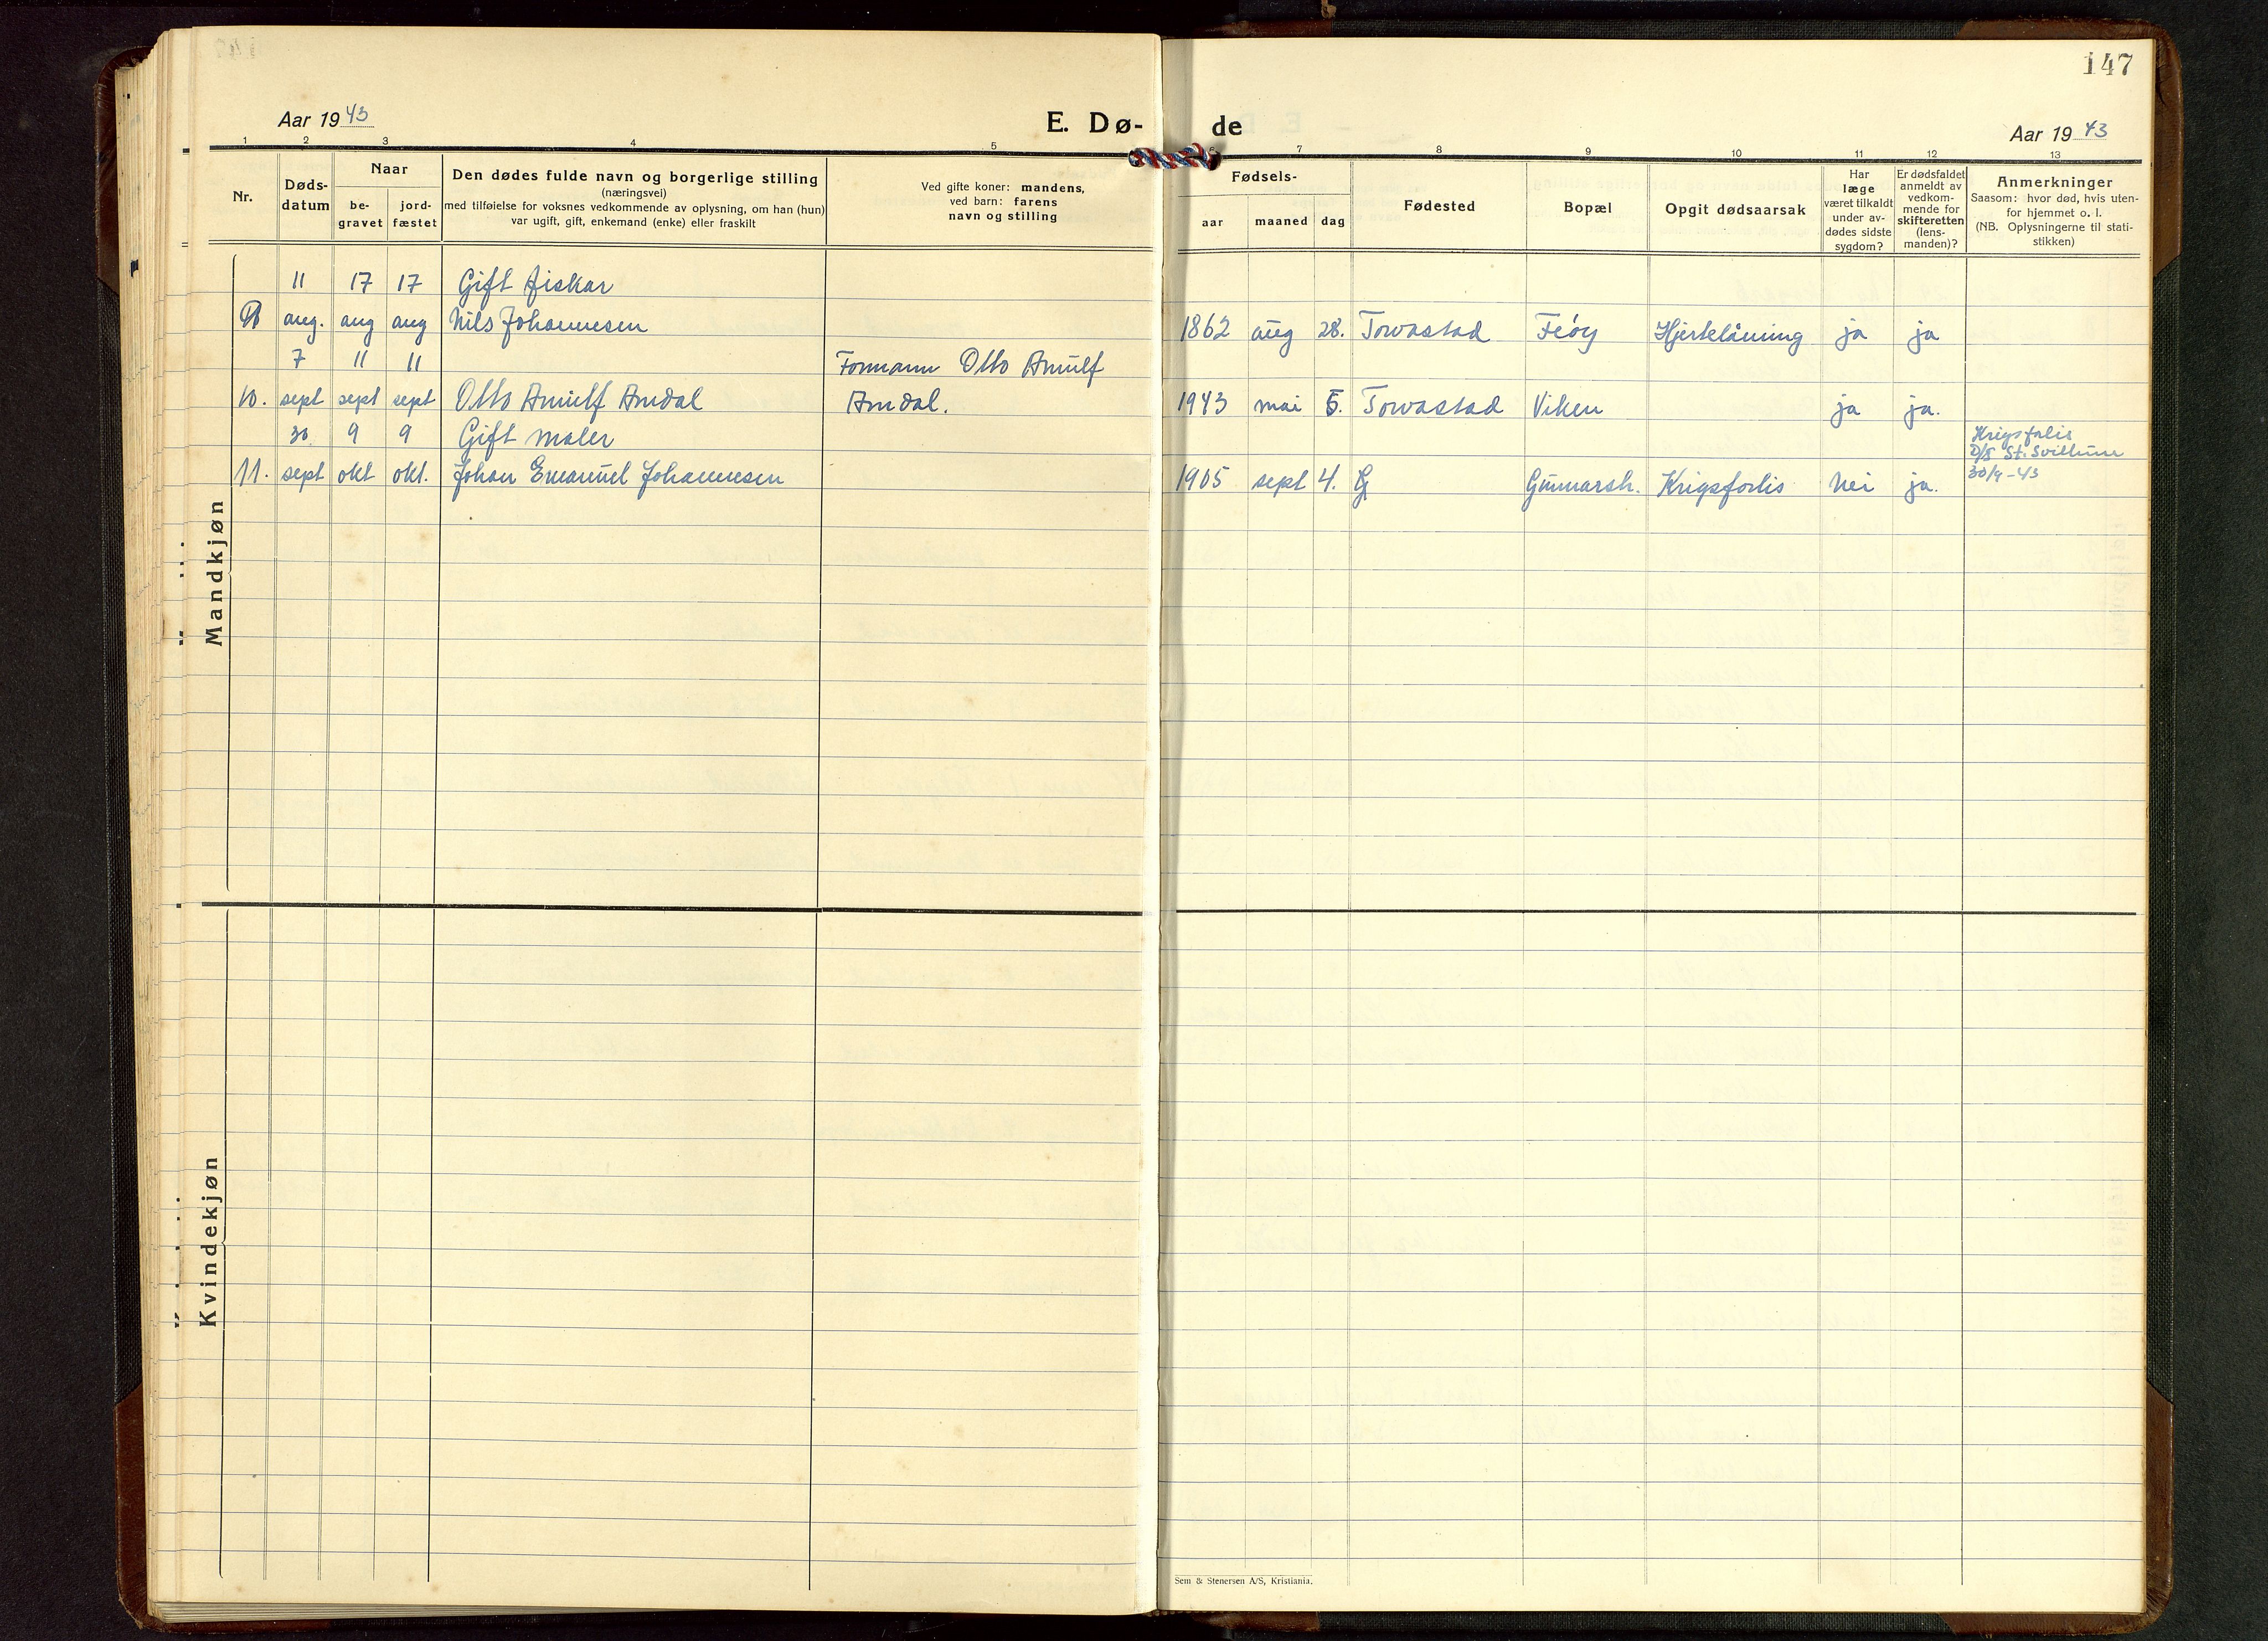 147
Aar 1943
E. Dø-
de
Aar 1943
1 2 3 4 5 6 7 8 9 10 11 12 13
Nr.
Døds-
datum
Naar
be-
gravet
jord-
fæstet
Den dødes fulde navn og borgerlige stilling
(næringsvei)
med tilføielse for voksnes vedkommende av oplysning, om han (hun)
var ugift, gift, enkemand (enke) eller fraskilt
Ved gifte koner: mandens,
ved barn: farens
navn og stilling
Fødsels-
aar maaned dag
Fødested
Bopæl
Opgit dødsaarsak
Har
læge
været tilkaldt
under av-
dødes sidste
sygdom?
Er dødsfaldet
anmeldt av
vedkom-
mende for
skifteretten
(lens-
manden)?
Anmerkninger
Saasom: hvor død, hvis uten-
for hjemmet o. l.
(NB. Oplysningerne til stati-
stikken)
Mandkjøn
11 17 17 Gift fisker
aug. aug aug Nils Johannesen 1862 aug 28. Torvastad Feøy Hjertelåming ja ja
7 11 11 Formann Otto Arnulf
10. sept sept sept Otto Arnulf Amdal Amdal. 1943 mai 5. Torvastad Viken ja ja.
30 9 9 Gift maler Krigsfalis
D/S St. Svithun
11. sept okt okt. Johan Emanuel Johannesen 1905 sept 4. G Gunnarsh. Krigsforlis Nei ja. 30/9-43
Kvindekjøn
Sem & Stenersen A/S, Kristiania.